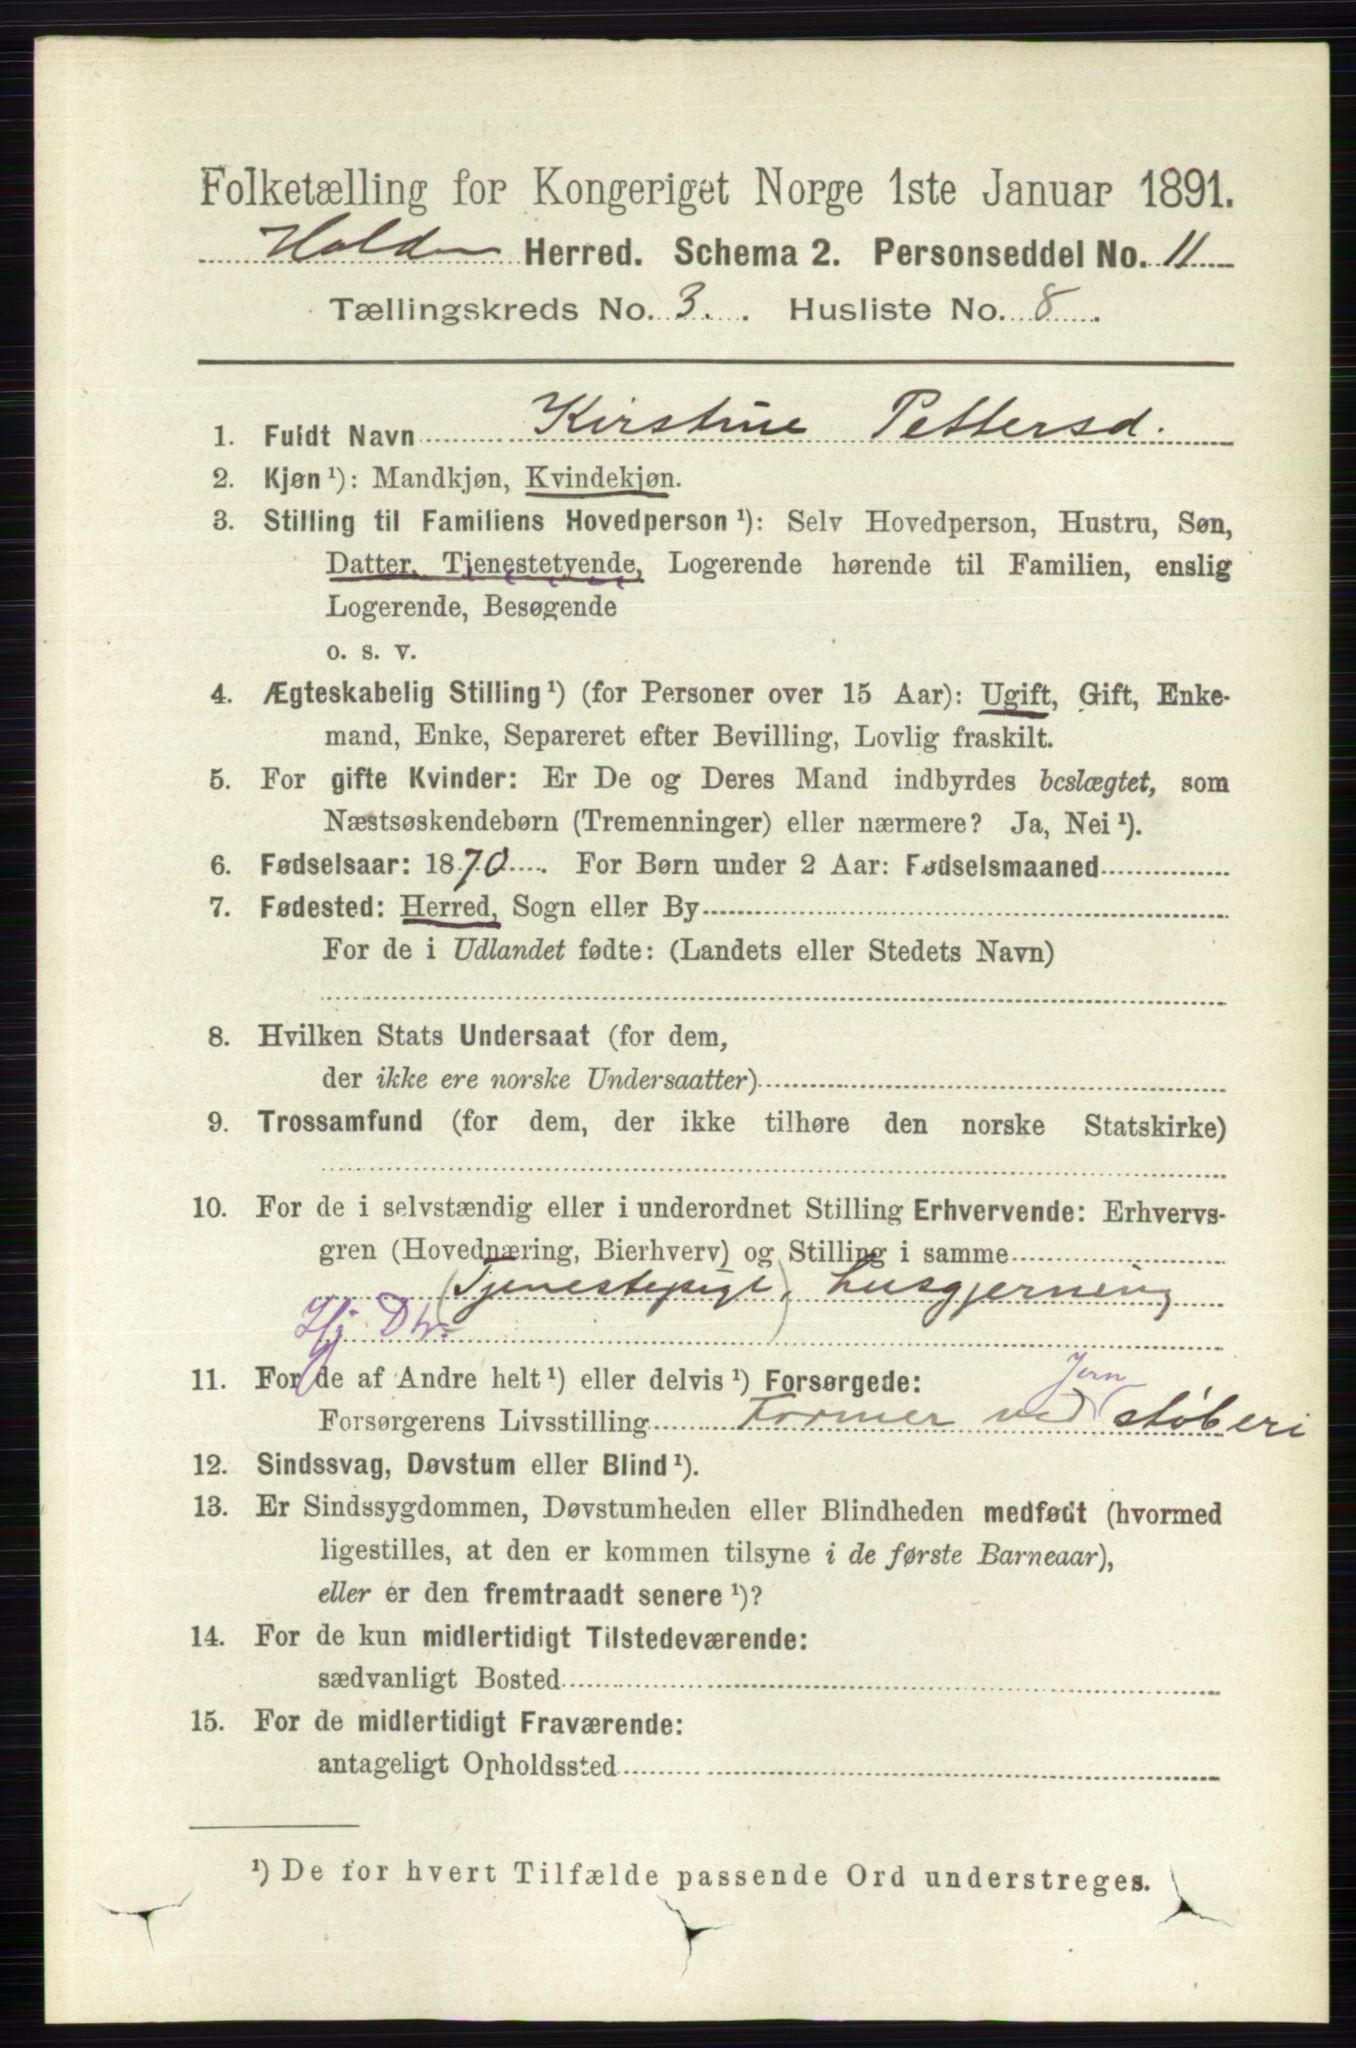 Folketælling for Kongeriget Norge 1ste Januar 1891.
Holden Herred. Schema 2. Personseddel No. 11
Tællingskreds No. 3. Husliste No. 8.
1. Fuldt Navn Kirstine Pettersd.
2. Kjøn ¹): Mandkjøn, Kvindekjøn.
3. Stilling til Familiens Hovedperson ¹): Selv Hovedperson, Hustru, Søn,
Datter, Tjenestetyende, Logerende hørende til Familien, enslig
Logerende, Besøgende
o. s. v.
4. Ægteskabelig Stilling ¹) (for Personer over 15 Aar): Ugift, Gift, Enke-
mand, Enke, Separeret efter Bevilling, Lovlig fraskilt.
5. For gifte Kvinder: Er De og Deres Mand indbyrdes beslægtet, som
Næstsøskendebørn (Tremenninger) eller nærmere? Ja, Nei ¹).
6. Fødselsaar: 1870. For Børn under 2 Aar: Fødselsmaaned
7. Fødested: Herred, Sogn eller By
For de i Udlandet fødte: (Landets eller Stedets Navn)
8. Hvilken Stats Undersaat (for dem,
der ikke ere norske Undersaatter)
9. Trossamfund (for dem, der ikke tilhøre den norske Statskirke)
10. For de i selvstændig eller i underordnet Stilling Erhvervende: Erhvervs-
gren (Hovednæring, Bierhverv) og Stilling i samme
(Tjenestepige), husgjerning
Hj Dtr.
11. For de af Andre helt ¹) eller delvis ¹) Forsørgede:
Jern
Forsørgerens Livsstilling Former ved støberi
12. Sindssvag, Døvstum eller Blind ¹).
13. Er Sindssygdommen, Døvstumheden eller Blindheden medfødt (hvormed
ligestilles, at den er kommen tilsyne i de første Barneaar),
eller er den fremtraadt senere ¹)?
14. For de kun midlertidigt Tilstedeværende:
sædvanligt Bosted
15. For de midlertidigt Fraværende:
antageligt Opholdssted
¹) De for hvert Tilfælde passende Ord understreges.